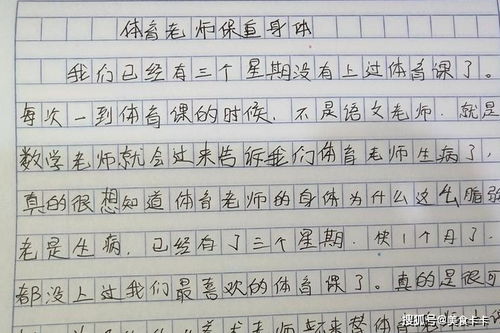 体育老师保重身体
我们已经有三个星期没有上过体育课了。
每次一到体育课的时候,不是语文老师.就是
数学老师就会过来告诉我们体育老师生病了,
真的很想知道体育老师的身体为什么这么脆弱
老是生病,已经有了三个星期.快1个月了.
都没上过我们最喜欢的体育课了。真的是很可
搜狐号@美食卡卡